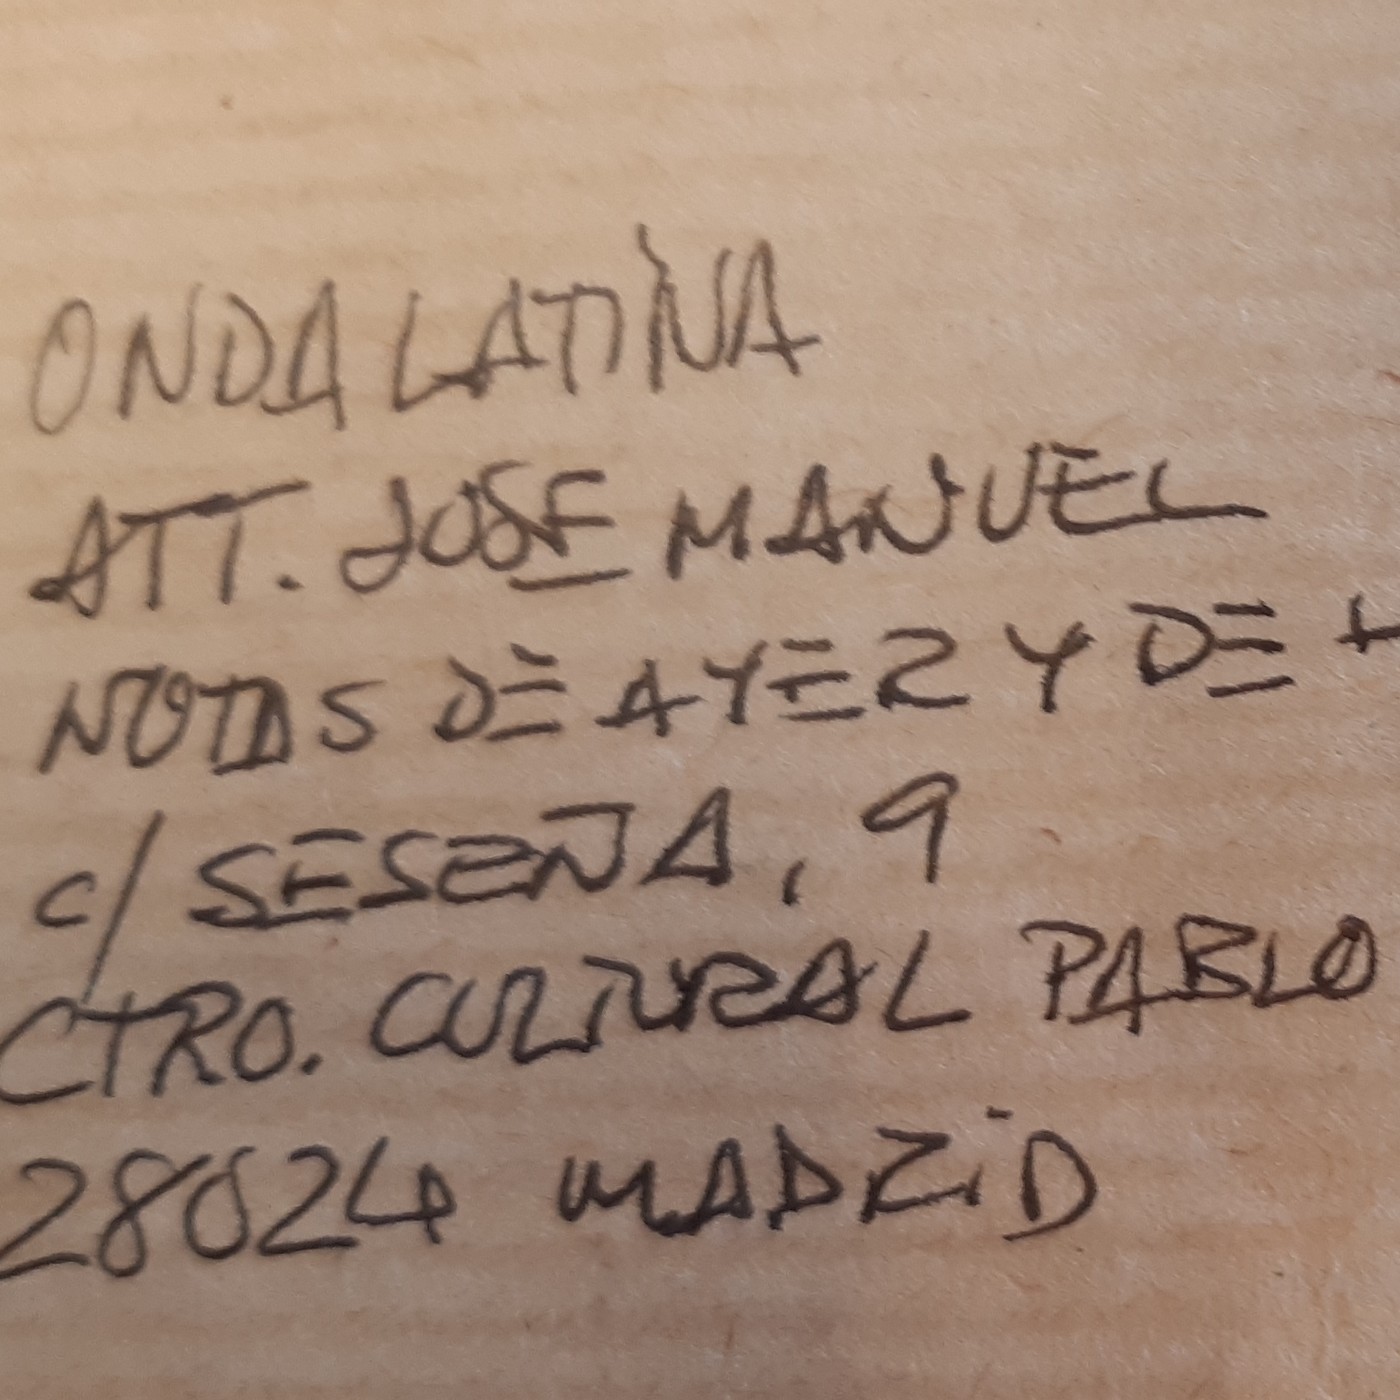 ONDA LATINA
ATT. JOSE MANUEL
NOTAS DE AYER Y DE
C/ SESEÑA, 9
CTRO. CULTURAL PABLO
28024 MADRID